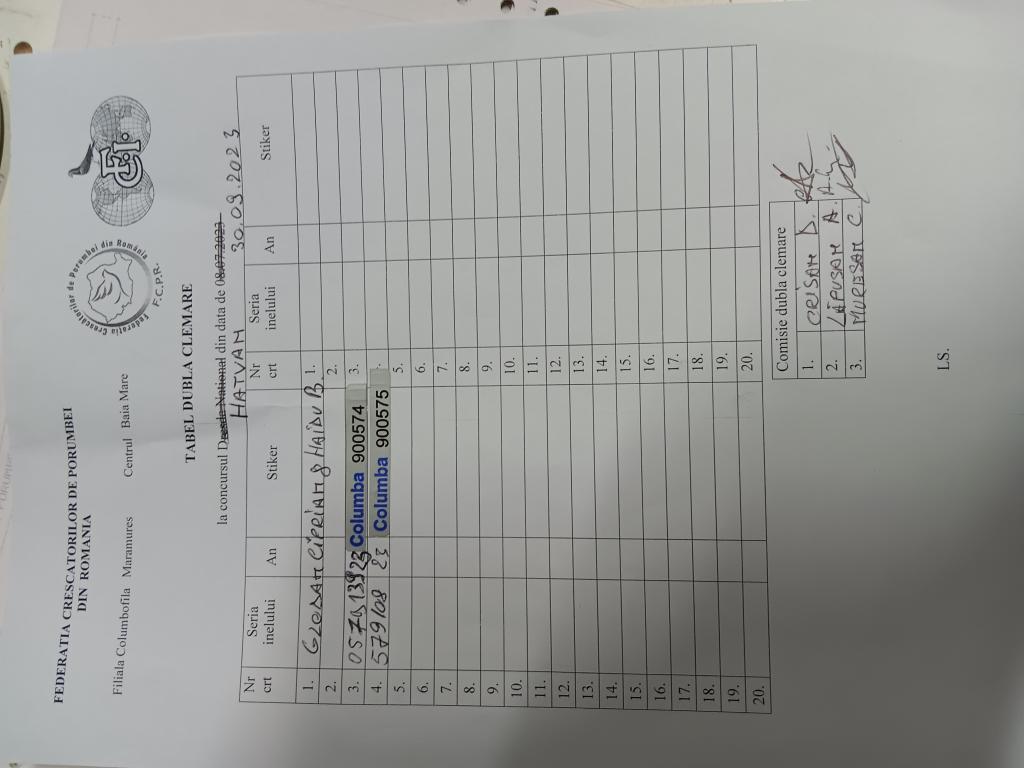 FEDERATIA CRESCATORILOR DE PORUMBEI
DIN ROMANIA
Filiala Columbofila Maramures Centrul Baia Mare
Federatia Crescătorilor de Porumbei din România
F.C.P.R.
FCI
TABEL DUBLA CLEMARE
la concursul National din data de 08.07.2023
HATVAN 30.09.2023
Nr crt Seria inelului An Stiker Nr crt Seria inelului An Stiker
1. CIPRIAN & HAIDU B. 1.
2. 2.
3. 23 Columba 900574 3.
4. 579108 23 Columba 900575
5. 5.
6. 6.
7. 7.
8. 8.
9. 9.
10. 10.
11. 11.
12. 12.
13. 13.
14. 14.
15. 15.
16. 16.
17. 17.
18. 18.
19. 19.
20. 20.
Comisie dubla clemare
1. CRIȘAN D.
2. LĂPUȘAN A.
3. MUREȘAN C.
LS.